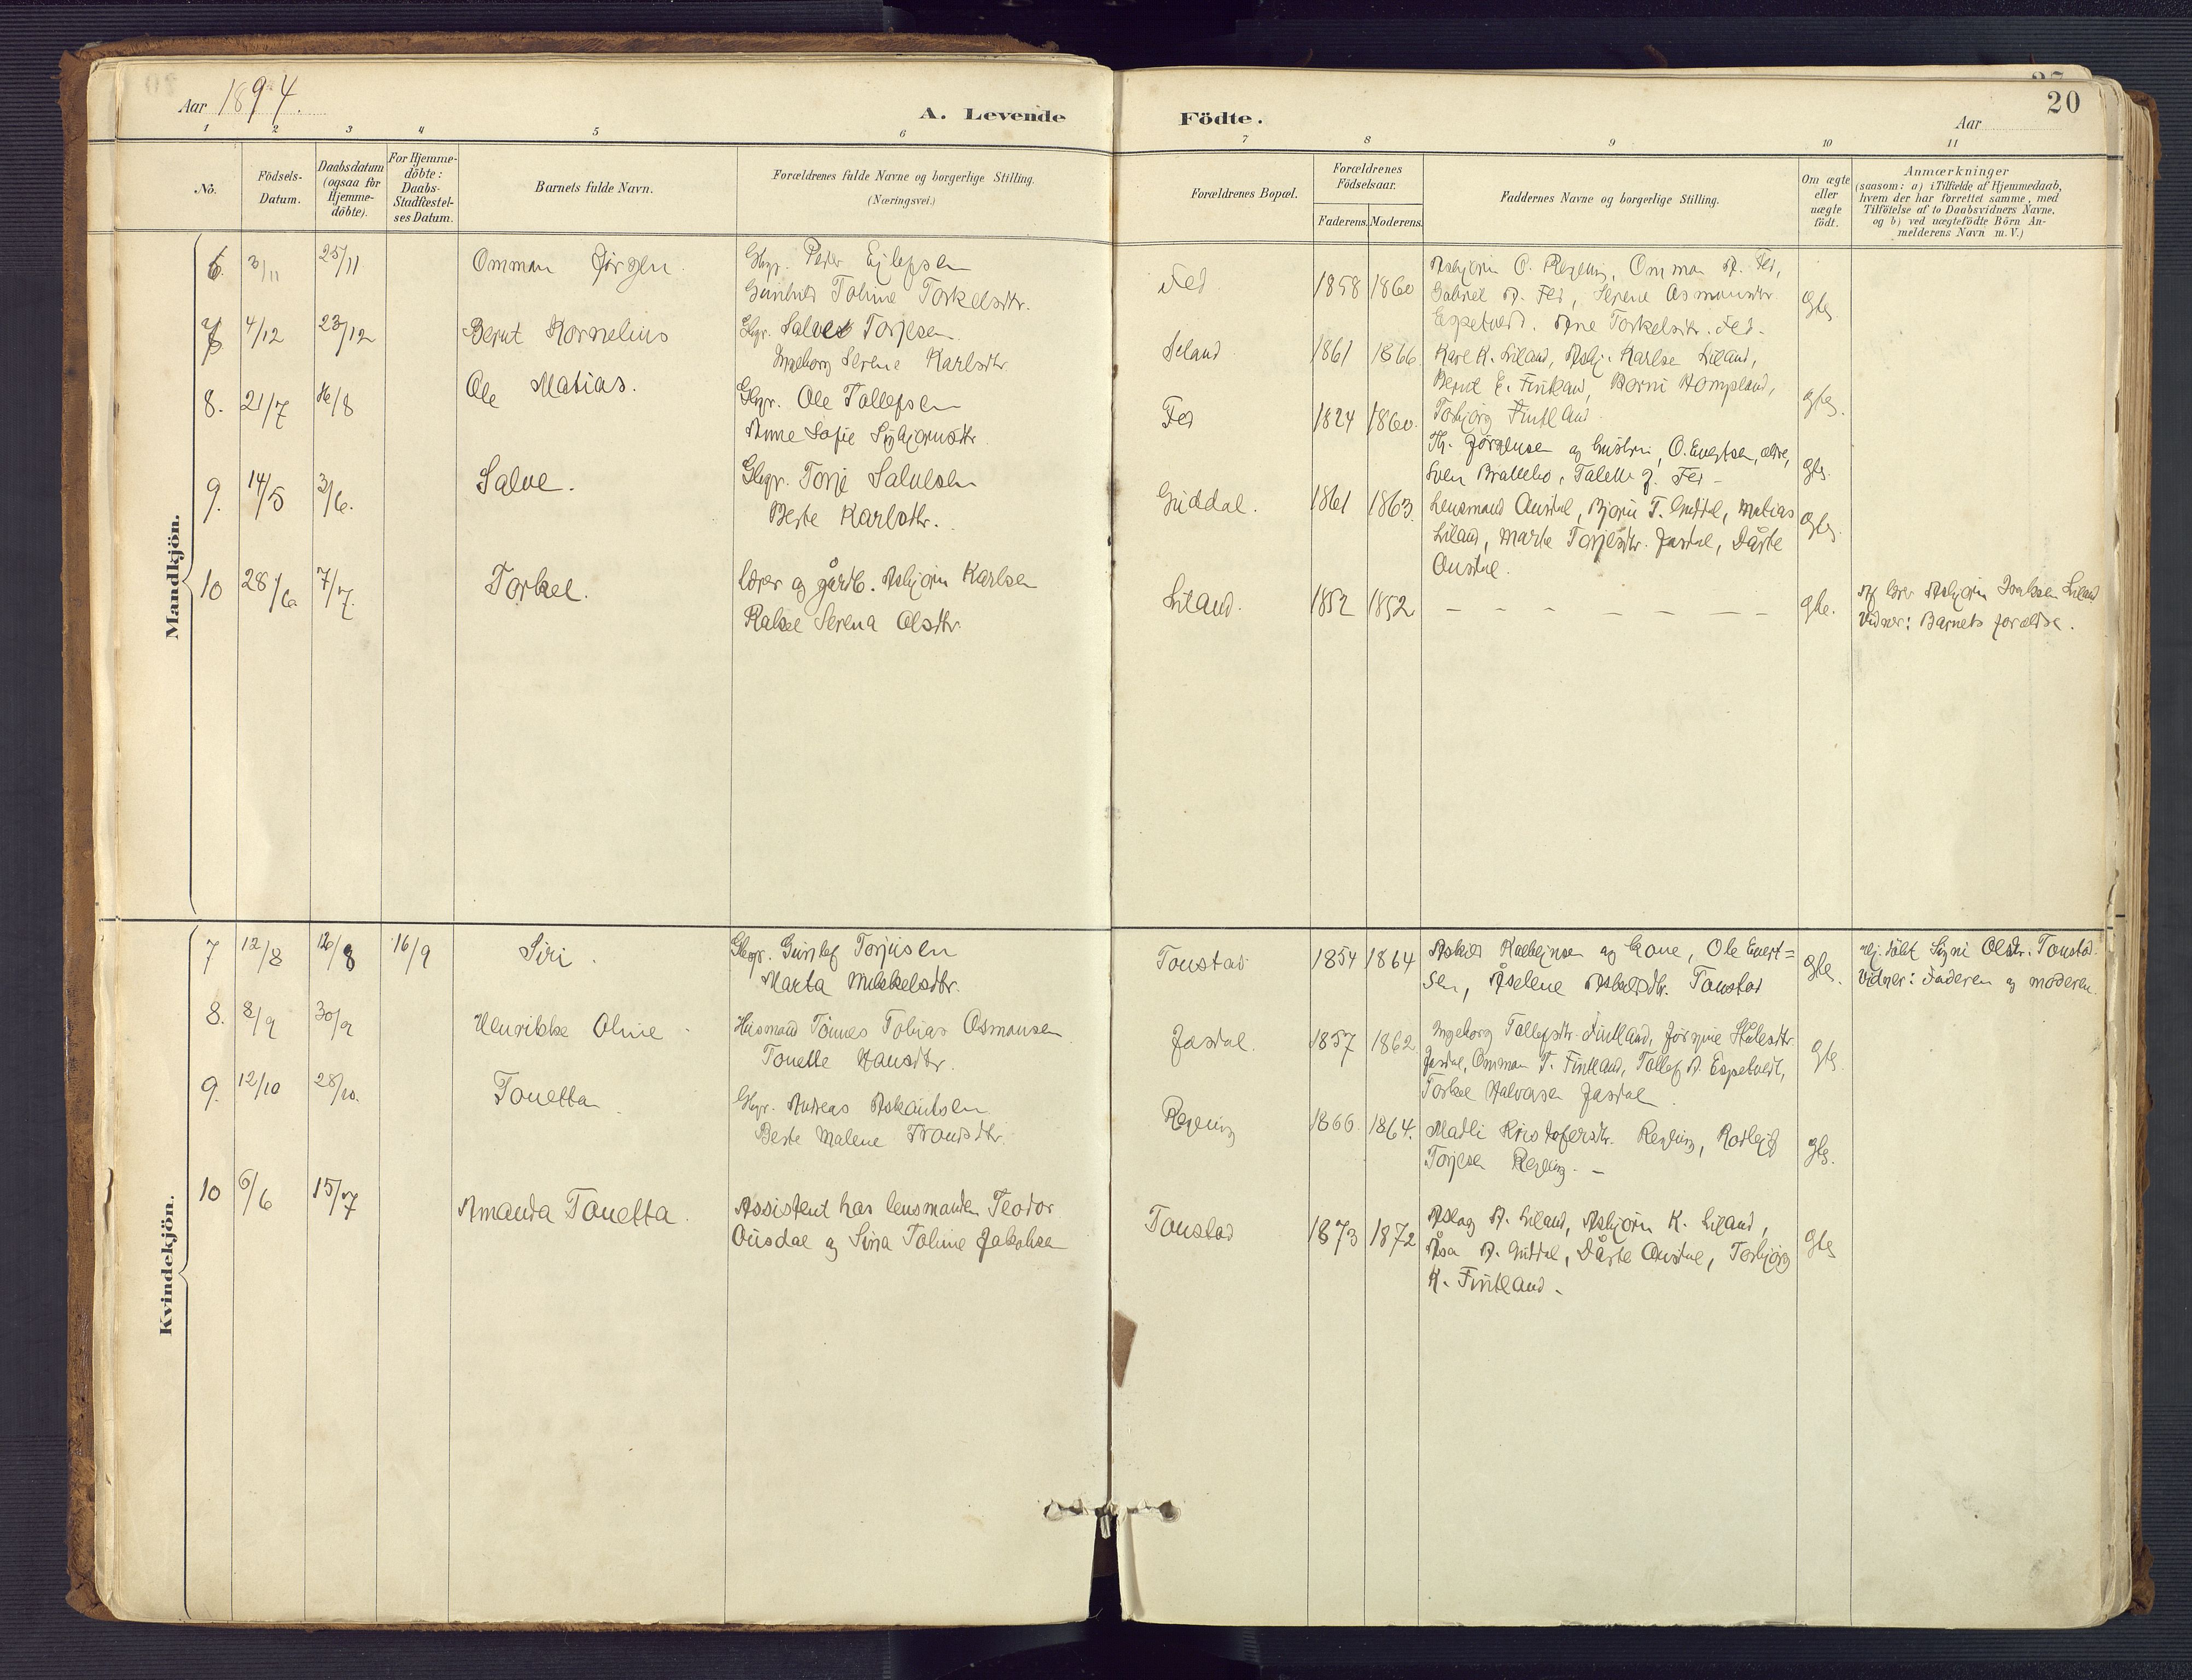 Aar 1894.
A. Levende Födte.
Aar
20
1 2 3 4 5 6 7 8 9 10 11
No.
Födsels-Datum.
Daabsdatum (ogsaa for Hjemme-döbte).
For Hjemme-döbte: Daabs-Stadfæstel-ses Datum.
Barnets fulde Navn.
Forældrenes fulde Navne og borgerlige Stilling.
(Næringsvei.)
Forældrenes Bopæl.
Forældrenes Födselsaar.
Faderens. Moderens.
Faddernes Navne og borgerlige Stilling.
Om ægte eller uægte födt.
Anmærkninger
(saasom: a) i Tilfælde af Hjemmedaab,
hvem der har forrettet samme, med
Tilföielse af to Daabsvidners Navne,
og b) ved uægtefödte Börn An-
melderens Navn m. V.)
Mandkjön.
6. 3/11 25/11 Omman Jörgen. Gbgr. Peder Ejlefsen
Gunhild Toline Torkelsdtr.
Fed 1858 1860
Asbjörn O. Regeling, Omman A. Fed,
Gabriel A. Fed, Serene Osmundsdtr.
Espetveid. Ane Torkelsdtr. Fed.
gte.
7 4/12 23/12 Bernt Kornelius Gbgr. Salve Torjesen
Ingeborg Serene Karlsdtr.
Liland 1861 1866
Karl K. Liland, Asbj. Karlse Liland,
Bernt E. Fintland, Hompland,
Torbjörg Fintland.
gte.
8. 21/7 /8 Ole Matias. Gbgr. Ole Tollefsen
Anne Sofie
Fed 1824 1860.
Th. Jörgensen og hustru, O. Evertsen, ældre,
Sven Bratlebo, J. Fed
gte.
9. 14/5 3/6. Salve. Gbgr. Torje Salvesen
Berte Karlsdtr.
Guddal. 1861 1863.
Lensmand Ousdal, Bjorn T. Guddal, Matias
Liland, Marte Torjesdtr. Josdal, Dårte
Ousdal.
gte.
10 28/6 7/7. Torkel. Lærer og gårdb. Asbjörn Karlsen
Rakel Serena Olsdtr.
Liland. 1852 1852 — — — — — — — — gte.
Af lærer Asbjörn Liland
Vidner: Barnets forældre.
Kvindekjön.
7 12/8 /8 16/9 Siri. Gbgr. Gunlef Torjusen
Marta Mikkelsdtr.
Tonstad 1854 1864
Askild og kone, Ole Evert=
sen, Åselene Askildsdtr. Tonstad
gte.
Hj. döbt Signi Olsdtr. Tonstad.
Vidner: Faderen og moderen.
8. 8/9 30/9 Henrikke Oline Husmand Tönnes Tobias Osmonsen
Tonette Hansdtr.
Josdal. 1857 1862
Ingeborg Tollefsdtr. Fintland, Jörgine
Josdal, Omman T. Fintland, Tollef A. Espetveit,
Torkel Halvorsen Josdal
gte.
9. 12/10 28/10. Tonetta Gbgr. Andreas Askoutsen
Berte Malene Tronsdtr.
Regeling 1866 1864.
Madli Kristofersdtr. Regeling,
Torjesen Regeling. —
gte.
10 6/6 15/7 Amanda Tonetta. Assistent hos lensmanden Teodor
Ousdal og Sina Toline Jakobsen
Tonstad 1873 1872
Aslag A. Liland, Asbjörn K. Liland,
Åsa A. Guddal, Dårte Ousdal, Torbjörg
K. Fintland.
gte